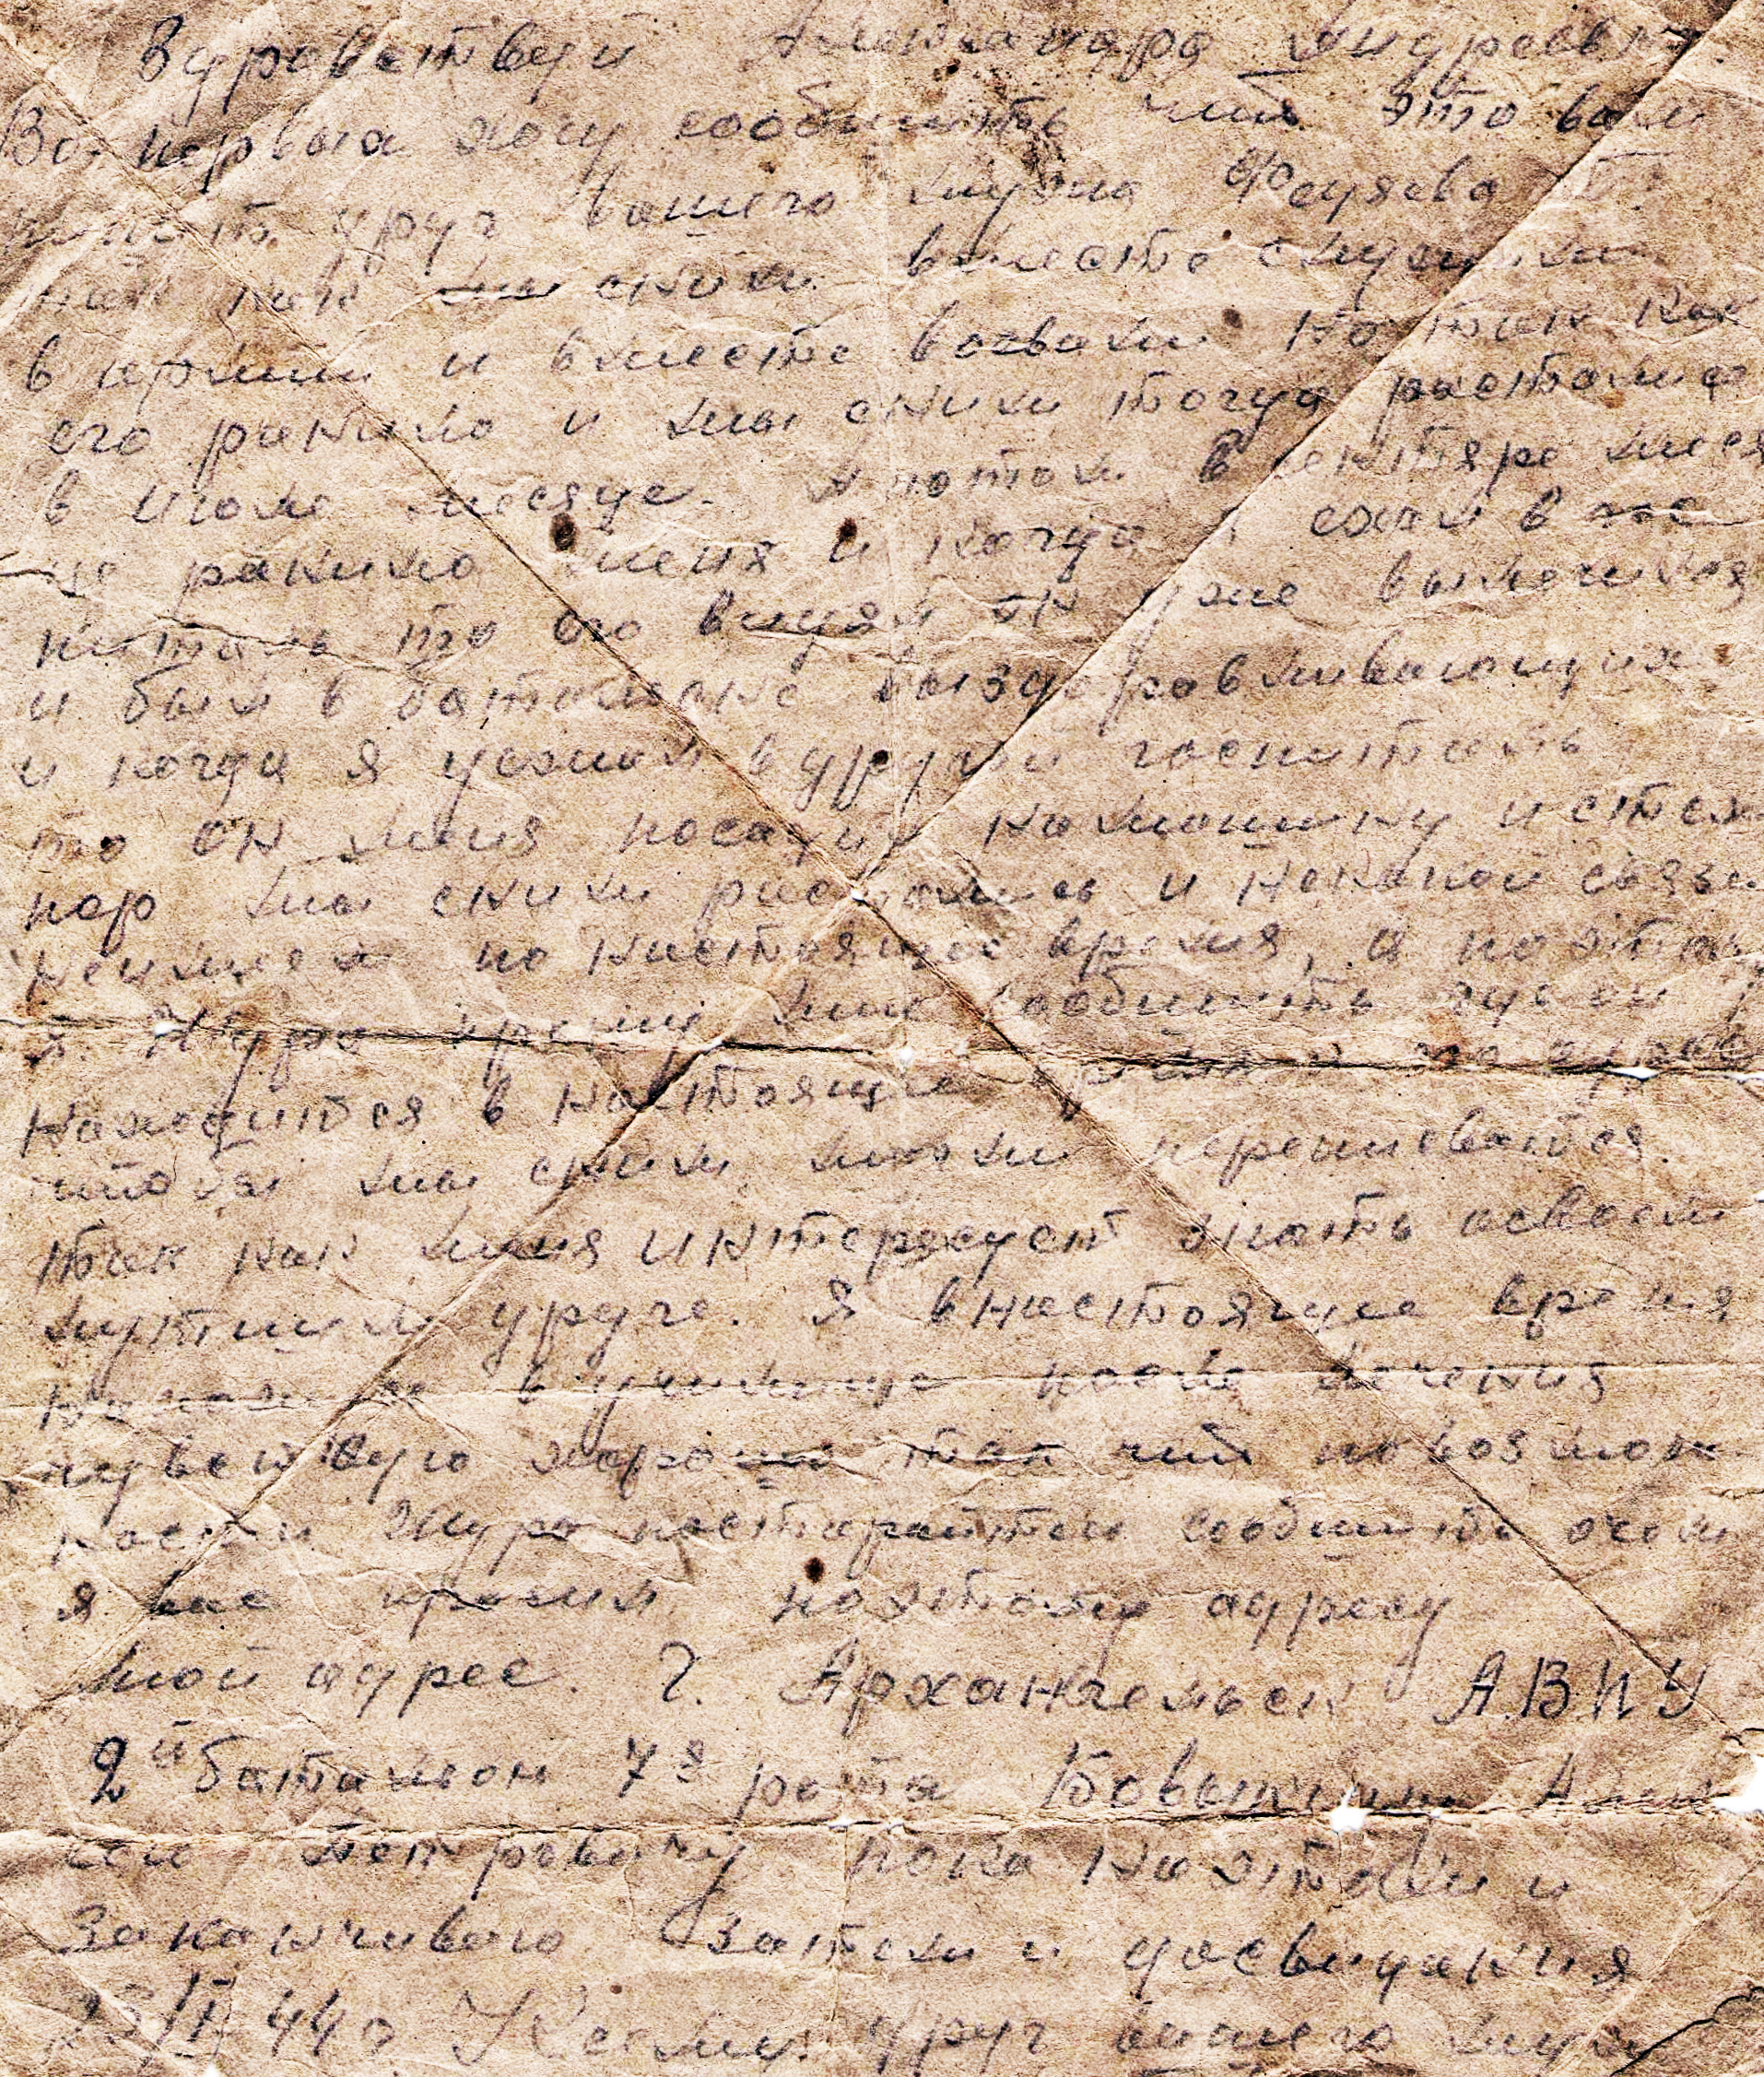 Здравствуй Александра Андреевна
Во первых хочу сообщить что это вам
пишет друг вашего мужа Феузева
так как мы сним вместе служили
в армии и вместе воевали но так как
его ранило и мы сним тогда растались
в июле месяце. А потом в сентябре меся
це ранило меня и когда я
питаль то его видял он уже вылечился
и был в батольоне выздоровливающих
и когда я уезжал в другой госпиталь
то он меня посадил на машину и с тех
пор мы сним растались и некакой связи
неимеем по настоящее время, а поэтому
я Шура прошу мне сообщить где он
находится в настоящие время
чтобы мы сним могли переписватся.
так как меня интересует знать освоем
лутшем друге. Я внастоящее время
нахожусь в училище после лечения
чувствую хорошо так что повозмож
ности Шура постарайтесь сообщить очем
я вас просил поэтому адресу
мой адрес. г. Архангельск А.В.П.У
2й батальон 7я рота Бовыкину Алек
сею Петровичу пока на этом и
заканчиваю Затем и досвидания
44г Ксему друг вашего мужа